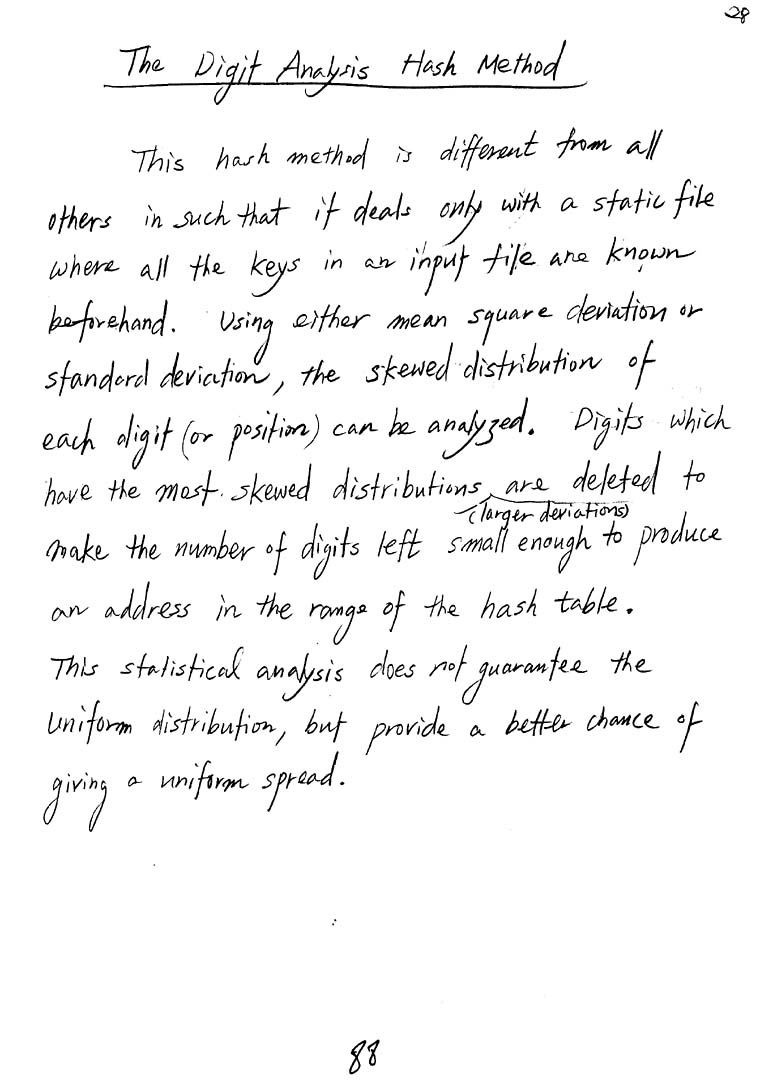 28
The Digit Analysis Hash Method
This hash method is different from all
others in such that it deals only with a static file
where all the keys in an input file are known
beforehand. Using either mean square deviation or
standard deviation, the skewed distribution of
each digit (or position) can be analyzed. Digits which
have the most skewed distributions are deleted to
(larger deviations)
make the number of digits left small enough to produce
an address in the range of the hash table.
This statistical analysis does not guarantee the
uniform distribution, but provide a better chance of
giving a uniform spread.
88